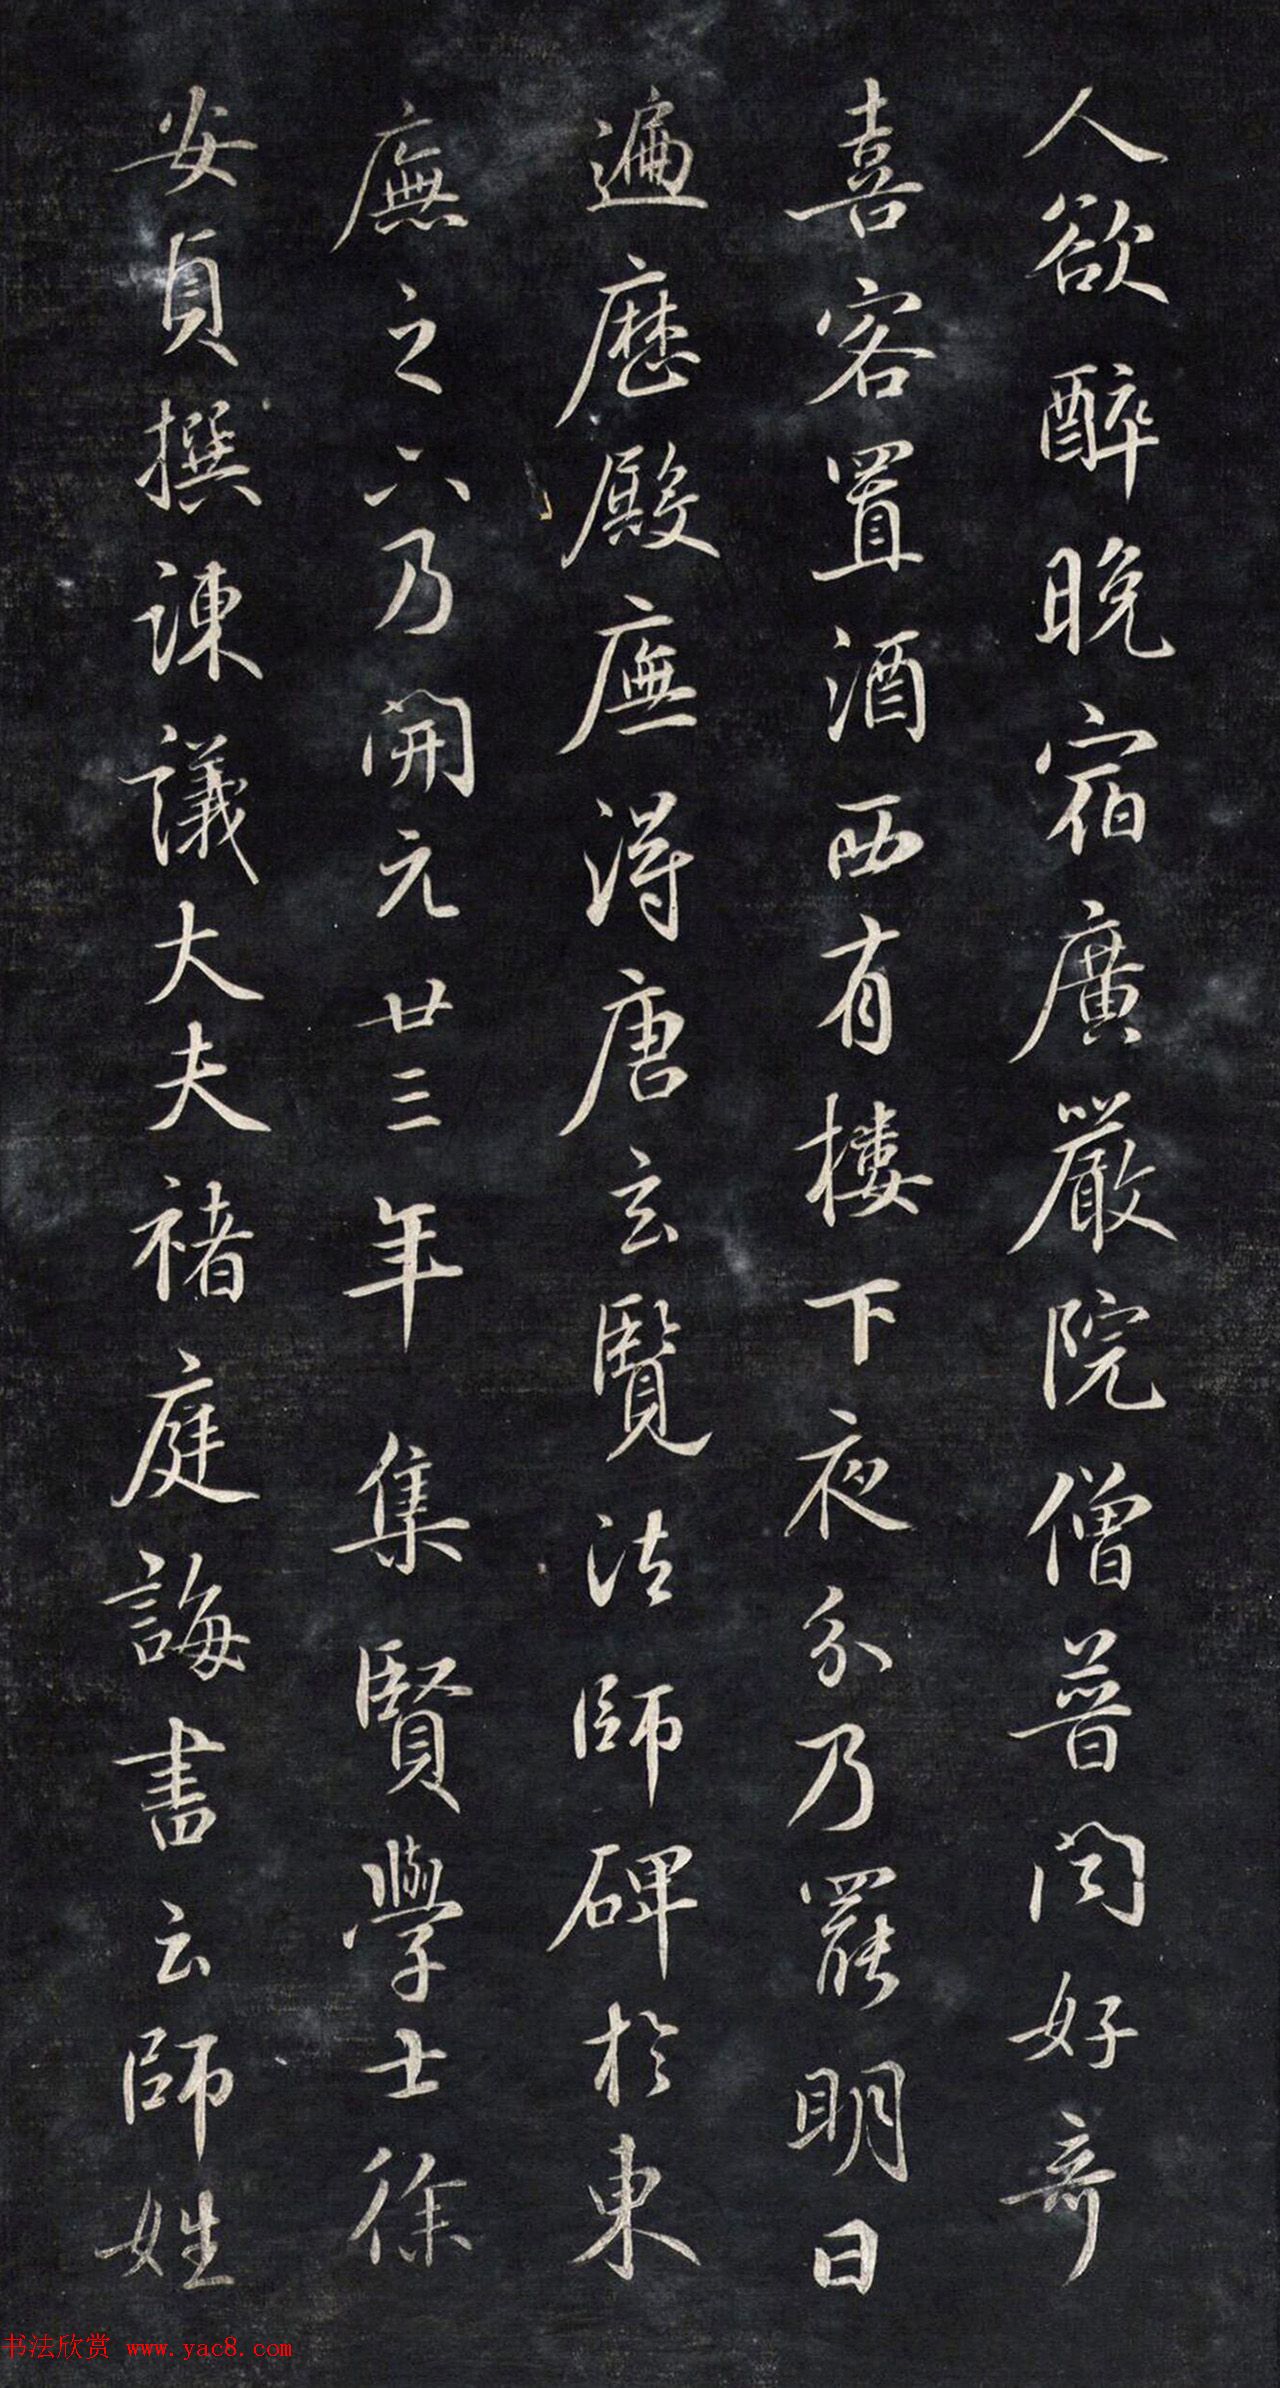 人欲醉晚宿廣嚴院僧普闻好奇
喜客置酒西有樓下夜分乃罷明日
遍歷殿廡得唐玄覽法師碑於東
廡之六乃開元廿三年集賢學士徐
安貞撰諫議大夫褚庭誨書云師姓
书法欣赏 www.yac8.com